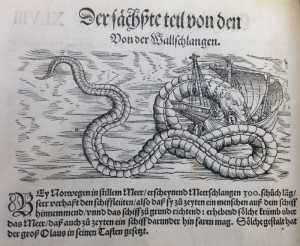 Der sächste teil von den
Von der Wallschlangen.
BEy Norwegen in stillem Meer/erscheynend Meerschlangen 300. schüch läg/
seer verhaßt den schiffleüten/also daß sy zů zeyten ein menschen auß dem schiff
hinnemmend/vnnd das schiff zů grund richtend: erhebend sölche krümb über
das Meer/daß auch zů zeyten ein schiff darunder hin faren mag. Sölche gestalt hat
der groß Olaus in seinen Taflen gesetzt.